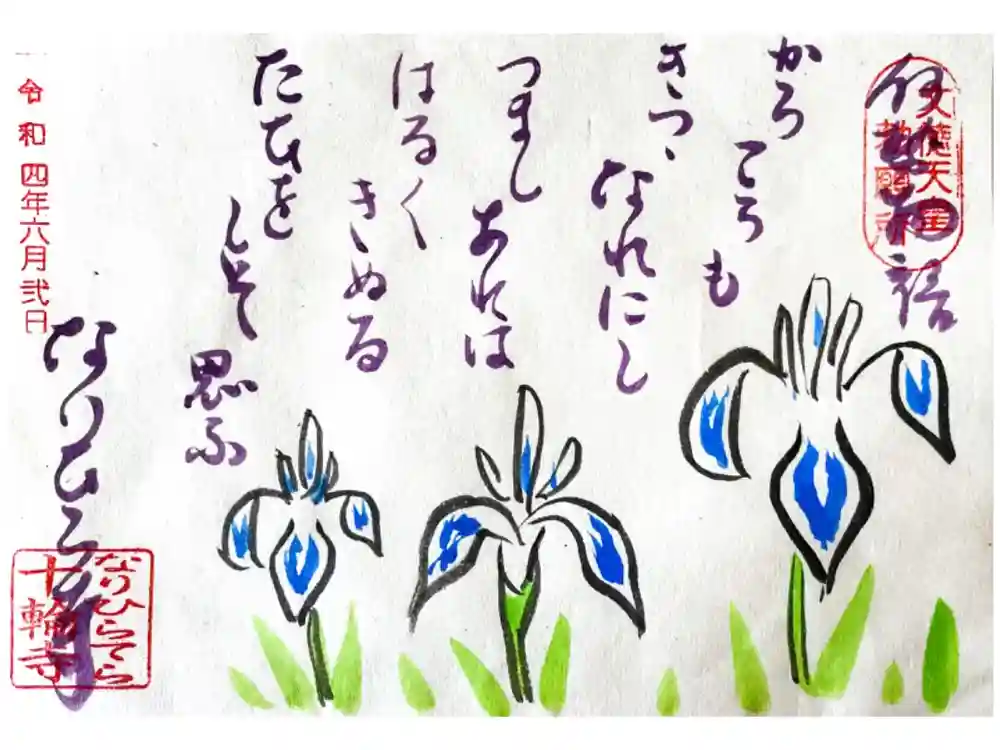 伊勢物語
文徳天皇
勅願所
から
ころも
きつゝ
なれにし
つまし
あれは
はる〱
きぬる
たひを
しそ
思ふ
なりひら寺
なりひらてら
十輪寺
令和四年六月弐日